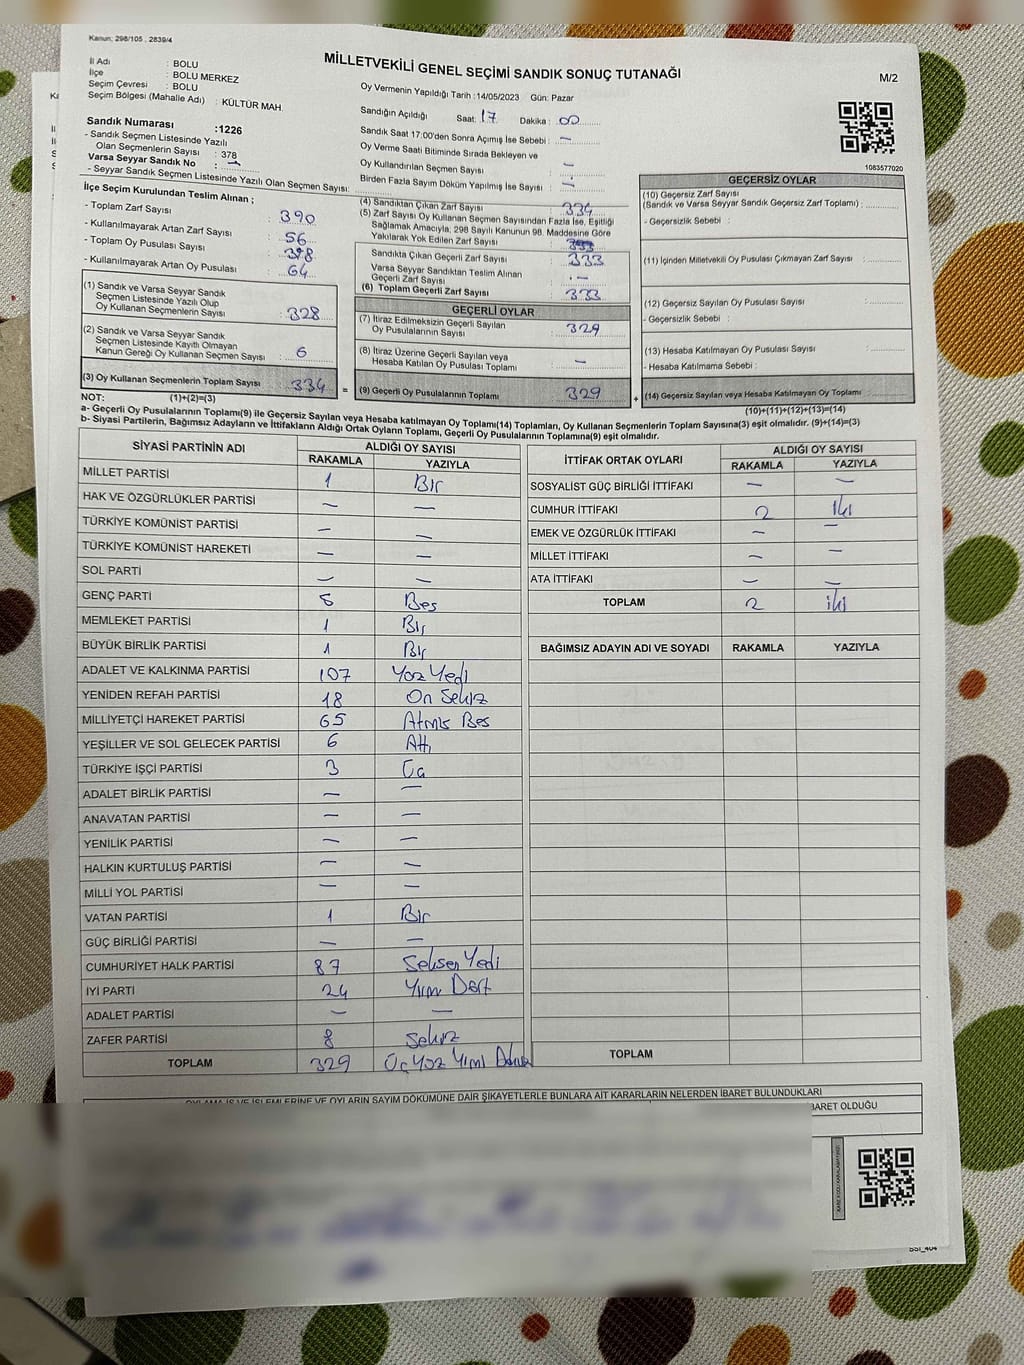 Kanun: 298/105 . 2839/4
MİLLETVEKİLİ GENEL SEÇİMİ SANDIK SONUÇ TUTANAĞI
M/2
İl Adı : BOLU
İlçe : BOLU MERKEZ
Seçim Çevresi : BOLU
Seçim Bölgesi (Mahalle Adı) : KÜLTÜR MAH.
Sandık Numarası :1226
- Sandık Seçmen Listesinde Yazılı
Olan Seçmenlerin Sayısı : 378
Varsa Seyyar Sandık No : —
- Seyyar Sandık Seçmen Listesinde Yazılı Olan Seçmen Sayısı:
Oy Vermenin Yapıldığı Tarih :14/05/2023 Gün: Pazar
Sandığın Açıldığı Saat: 17 Dakika : 00
Sandık Saat 17:00'den Sonra Açımış İse Sebebi : —
Oy Verme Saati Bitiminde Sırada Bekleyen ve
Oy Kullandırılan Seçmen Sayısı : —
Birden Fazla Sayım Döküm Yapılmış İse Sayısı : —
1083577020
İlçe Seçim Kurulundan Teslim Alınan ;
- Toplam Zarf Sayısı : 390
- Kullanılmayarak Artan Zarf Sayısı : 56
- Toplam Oy Pusulası Sayısı :
- Kullanılmayarak Artan Oy Pusulası : 64
(1) Sandık ve Varsa Seyyar Sandık
Seçmen Listesinde Yazılı Olup
Oy Kullanan Seçmenlerin Sayısı : 328
(2) Sandık ve Varsa Seyyar Sandık
Seçmen Listesinde Kayıtlı Olmayan
Kanun Gereği Oy Kullanan Seçmen Sayısı : 6
(3) Oy Kullanan Seçmenlerin Toplam Sayısı : 334 =
(4) Sandıktan Çıkan Zarf Sayısı : 334
(5) Zarf Sayısı Oy Kullanan Seçmen Sayısından Fazla İse, Eşitliği
Sağlamak Amacıyla, 298 Sayılı Kanunun 98. Maddesine Göre
Yakılarak Yok Edilen Zarf Sayısı :
Sandıkta Çıkan Geçerli Zarf Sayısı : 333
Varsa Seyyar Sandıktan Teslim Alınan
Geçerli Zarf Sayısı : —
(6) Toplam Geçerli Zarf Sayısı : 333
GEÇERLİ OYLAR
(7) İtiraz Edilmeksizin Geçerli Sayılan
Oy Pusulalarının Sayısı : 329
(8) İtiraz Üzerine Geçerli Sayılan veya
Hesaba Katılan Oy Pusulası Toplamı : —
(9) Geçerli Oy Pusulalarının Toplamı : 329 +
GEÇERSİZ OYLAR
(10) Geçersiz Zarf Sayısı
(Sandık ve Varsa Seyyar Sandık Geçersiz Zarf Toplamı) :
- Geçersizlik Sebebi :
(11) İçinden Milletvekili Oy Pusulası Çıkmayan Zarf Sayısı :
(12) Geçersiz Sayılan Oy Pusulası Sayısı :
- Geçersizlik Sebebi :
(13) Hesaba Katılmayan Oy Pusulası Sayısı :
- Hesaba Katılmama Sebebi :
(14) Geçersiz Sayılan veya Hesaba Katılmayan Oy Toplamı :
NOT: (1)+(2)=(3)
(10)+(11)+(12)+(13)=(14)
a- Geçerli Oy Pusulalarının Toplamı(9) ile Geçersiz Sayılan veya Hesaba katılmayan Oy Toplamı(14) Toplamları, Oy Kullanan Seçmenlerin Toplam Sayısına(3) eşit olmalıdır. (9)+(14)=(3)
b- Siyasi Partilerin, Bağımsız Adayların ve İttifakların Aldığı Ortak Oyların Toplamı, Geçerli Oy Pusulalarının Toplamına(9) eşit olmalıdır.
SİYASİ PARTİNİN ADI ALDIĞI OY SAYISI
RAKAMLA YAZIYLA
MİLLET PARTİSİ 1 Bir
HAK VE ÖZGÜRLÜKLER PARTİSİ — —
TÜRKİYE KOMÜNİST PARTİSİ — —
TÜRKİYE KOMÜNİST HAREKETİ — —
SOL PARTİ — —
GENÇ PARTİ 5 Beş
MEMLEKET PARTİSİ 1 Bir
BÜYÜK BİRLİK PARTİSİ 1 Bir
ADALET VE KALKINMA PARTİSİ 107 Yüz Yedi
YENİDEN REFAH PARTİSİ 18 On Sekiz
MİLLİYETÇİ HAREKET PARTİSİ 65 Atmış Beş
YEŞİLLER VE SOL GELECEK PARTİSİ 6 Altı
TÜRKİYE İŞÇİ PARTİSİ 3 Üç
ADALET BİRLİK PARTİSİ — —
ANAVATAN PARTİSİ — —
YENİLİK PARTİSİ — —
HALKIN KURTULUŞ PARTİSİ — —
MİLLİ YOL PARTİSİ — —
VATAN PARTİSİ 1 Bir
GÜÇ BİRLİĞİ PARTİSİ — —
CUMHURİYET HALK PARTİSİ 87 Seksen Yedi
İYİ PARTİ 24 Yirmi Dört
ADALET PARTİSİ — —
ZAFER PARTİSİ 8 Sekiz
TOPLAM 329 Üç Yüz Yirmi Dokuz
İTTİFAK ORTAK OYLARI ALDIĞI OY SAYISI
RAKAMLA YAZIYLA
SOSYALİST GÜÇ BİRLİĞİ İTTİFAKI — —
CUMHUR İTTİFAKI 2 İki
EMEK VE ÖZGÜRLÜK İTTİFAKI — —
MİLLET İTTİFAKI — —
ATA İTTİFAKI — —
TOPLAM 2 iki
BAĞIMSIZ ADAYIN ADI VE SOYADI RAKAMLA YAZIYLA
TOPLAM
OYLAMA İŞ VE İŞLEMLERİNE VE OYLARIN SAYIM DÖKÜMÜNE DAİR ŞİKAYETLERLE BUNLARA AİT KARARLARIN NELERDEN İBARET BULUNDUKLARI
BARET OLDUĞU